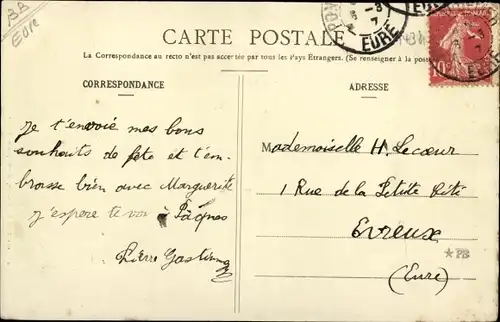 BA
Eure
EURE
EURE
10
CARTE POSTALE
La Correspondance au recto n'est pas acceptée par tous les Pays Étrangers. (Se renseigner à la poste
CORRESPONDANCE
ADRESSE
Je t'envoie mes bons
souhaits de fête et t'em-
brasse bien avec Marguerite
j'espère te voir à Pâques
Pierre
Mademoiselle H. Lecœur
1 Rue de la Petite Cité
Evreux
(Eure)
★PB